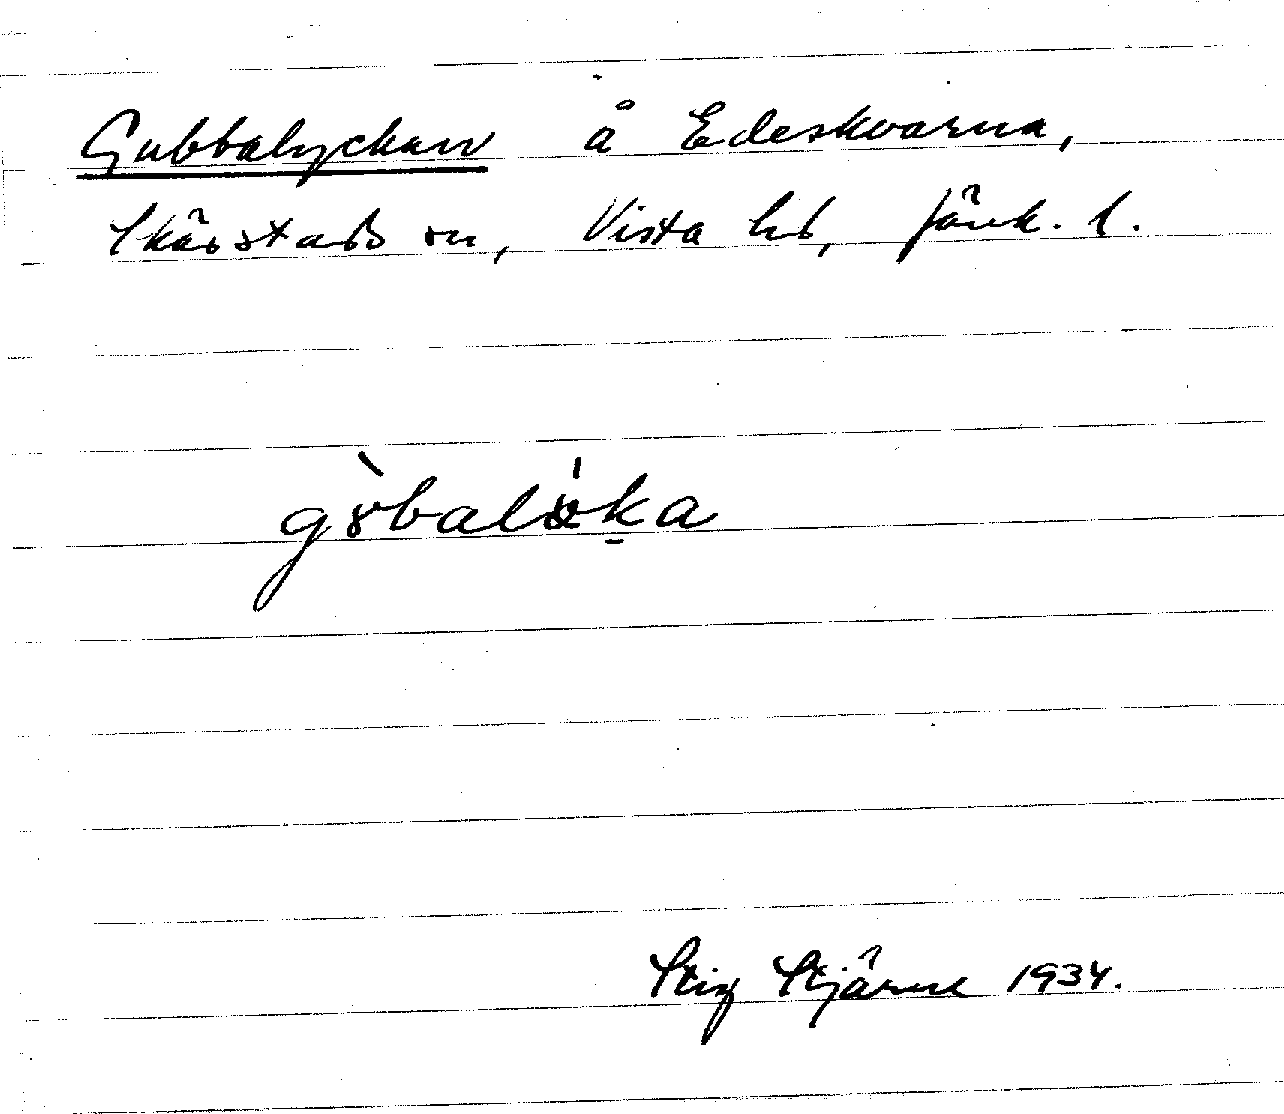 Gubbalyckan å Edeskvarna,
Skärstads sn, Vista hd, Jönk. l.
Stig Stjärne 1934.